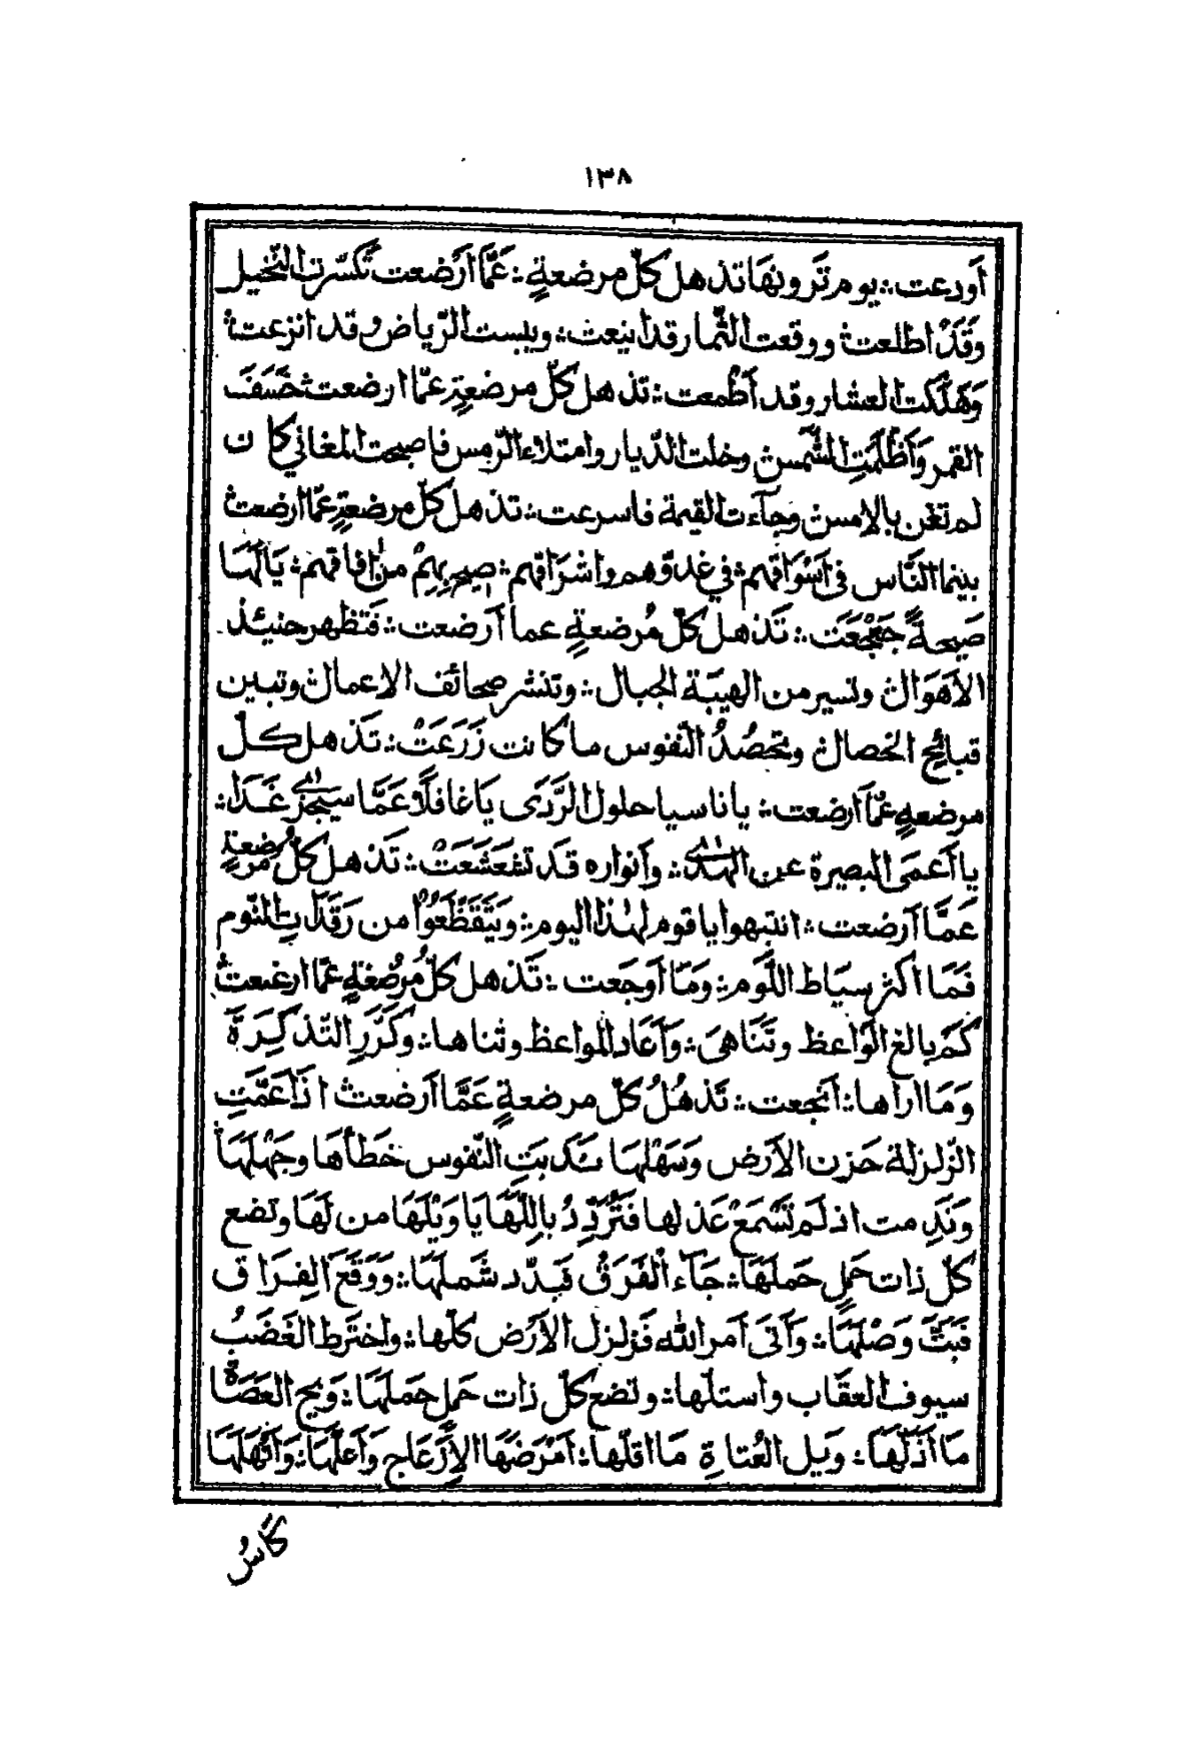 ١٣٨
أَودعت ؛ يوم تَرونهَا تذهل كلّ مرضعةٍ ؛ عَمَّا أَرْضعت تَكسّرت النّخيل
وَقَدْ اطلعت ؛ ووقعت الثّمار قد انيعت ؛ ويبست الرّياض وقد انزعت ؛
وَهَلَكت العشار وقد أَظمعت ؛ تذهل كلّ مرضعةٍ عمّا ارضعت خَسَفَ
القمر وَأَظْلَمَتِ الشَّمس وخلت الدّيار وامتلاء الرّمس فاصبحت المغاني كان
لم تغن بالامس وجآءت القيمة فاسرعت ؛ تذهل كلّ مرضعةٍ عمّا ارضعت
بينما النَّاس فى اَسْوَاقهم ؛ في غدوّهم واشرَاقهم ؛ صيح بِهِمْ من افاقهم ؛ يَالَهَا
صَيحةً جَعْجَعَت ؛ تَذهل كلّ مُرضعةٍ عما أَرضعت ؛ فَتظهر حنيئذ
الاَهَوَال وتسير من الهيبَة الجبال ؛ وتنشر صحائف الاعمال وتبين
قبائح الخصال وتحصُدُ النّفوس ما كانت زَرَعَتْ ؛ تَذهل كلّ
مرضعهٍ عمّا اَرضعت ؛ يا ناسيا حلول الرَّدَى يَا غافلًا عَمَّا سيجزى غَدَا ؛
يا اَعمَى البصيرة عن الهدى ؛ وأنواره قَد تشعشَعَتْ ؛ تَذهل كلّ مرضعةٍ
عَمَّا اَرضعت ؛ انتبهوا يا قوم لهذا اليوم ؛ وَيَتَقَظَعُوْا من رَقَدَاتِ النّوم
فَمَا اكثر سِيَاط اللَّوم ؛ وَمَا أَوجَعت ؛ تَذهل كلُّ مُرْضعةٍ عمّا ارضعت
كَم بالغ الوَاعظ وتَنَاهىَ ؛ وَاَعَاد المواعظ وثناها ؛ وكَرَّرِ التّذكِرَةَ
وَمَا اراها ؛ اَنجعت ؛ تَذهُلُ كلّ مرضعةٍ عَمَّا اَرضعت اذَا عَمَّتِ
الزّلزلة حَزن الاَرض وَسَهْلهَا نَكبتِ النّفوس خَطأهَا وَجَهْلَهَا
وَنَدِمت اذ لَم تَسْمَعْ عَذلها فَتُرَدِّدُ بِاللّهَا يَا وَيْلَهَا من لَهَا وتضع
كلّ ذات حَملٍ حَملَهَا ؛ جَآءَ الْفَرَقُ فَبدّد شَملَهَا ؛ وَوَقَعَ الفِرَاق
فَبَتَّ وَصْلَهَا ؛ وَاَتىَ اَمر الله فَزلزل الاَرض كلّها ؛ واخترَط الغَضَبُ
سيوف العقَاب واستلّها ؛ وتضع كلّ ذات حَملٍ حَملَهَا ؛ وَيح العَصَاة
مَا اَذَلّهَا ؛ وَيل العُتاةِ مَا اقلّها ؛ اَمْرَضَهَا الاِزعَاج وَاَعلّهَا ؛ وَاَنْهَلَهَا
كَاسُ